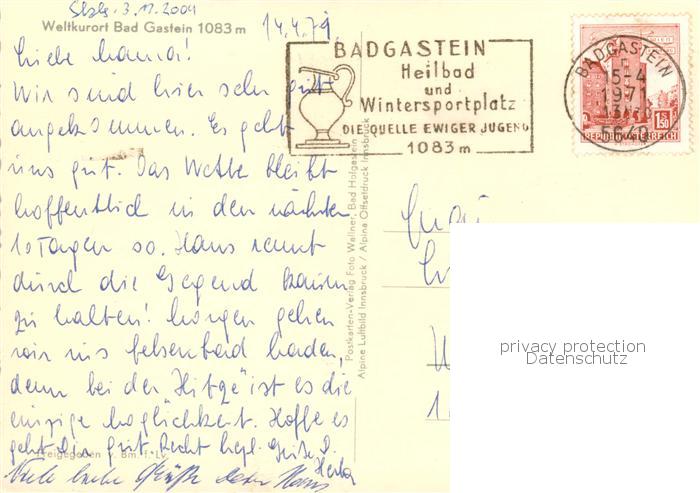 Slzb. 3.11.2004
Weltkurort Bad Gastein 1083 m
14.4.71
Liebe Mama!
Wir sind hier sehr gut
angekommen. Es geht
uns gut. Das Wetter bleibt
hoffentlich in den nächsten
10 Tagen so. Hans rennt
durch die Gegend kaum
zu halten! Morgen gehen
wir ins Felsenbad baden,
denn bei der Hitze ist es die
einzige Möglichkeit. Hoffe es
geht Dir gut. Recht herzl. Grüße D.
Herta
Viele liebe Grüße dein Hans
Freigegeben v. Bm. f. Lv.
BADGASTEIN
Heilbad
und
Wintersportplatz
DIE QUELLE EWIGER JUGEND
1083 m
BADGASTEIN
15-4
1971
5640
1.50
REPUBLIK ÖSTERREICH
Postkarten-Verlag Foto Wallner, Bad Hofgastein
Alpine Luftbild Innsbruck / Alpine Offsetdruck Innsbruck
privacy protection
Datenschutz